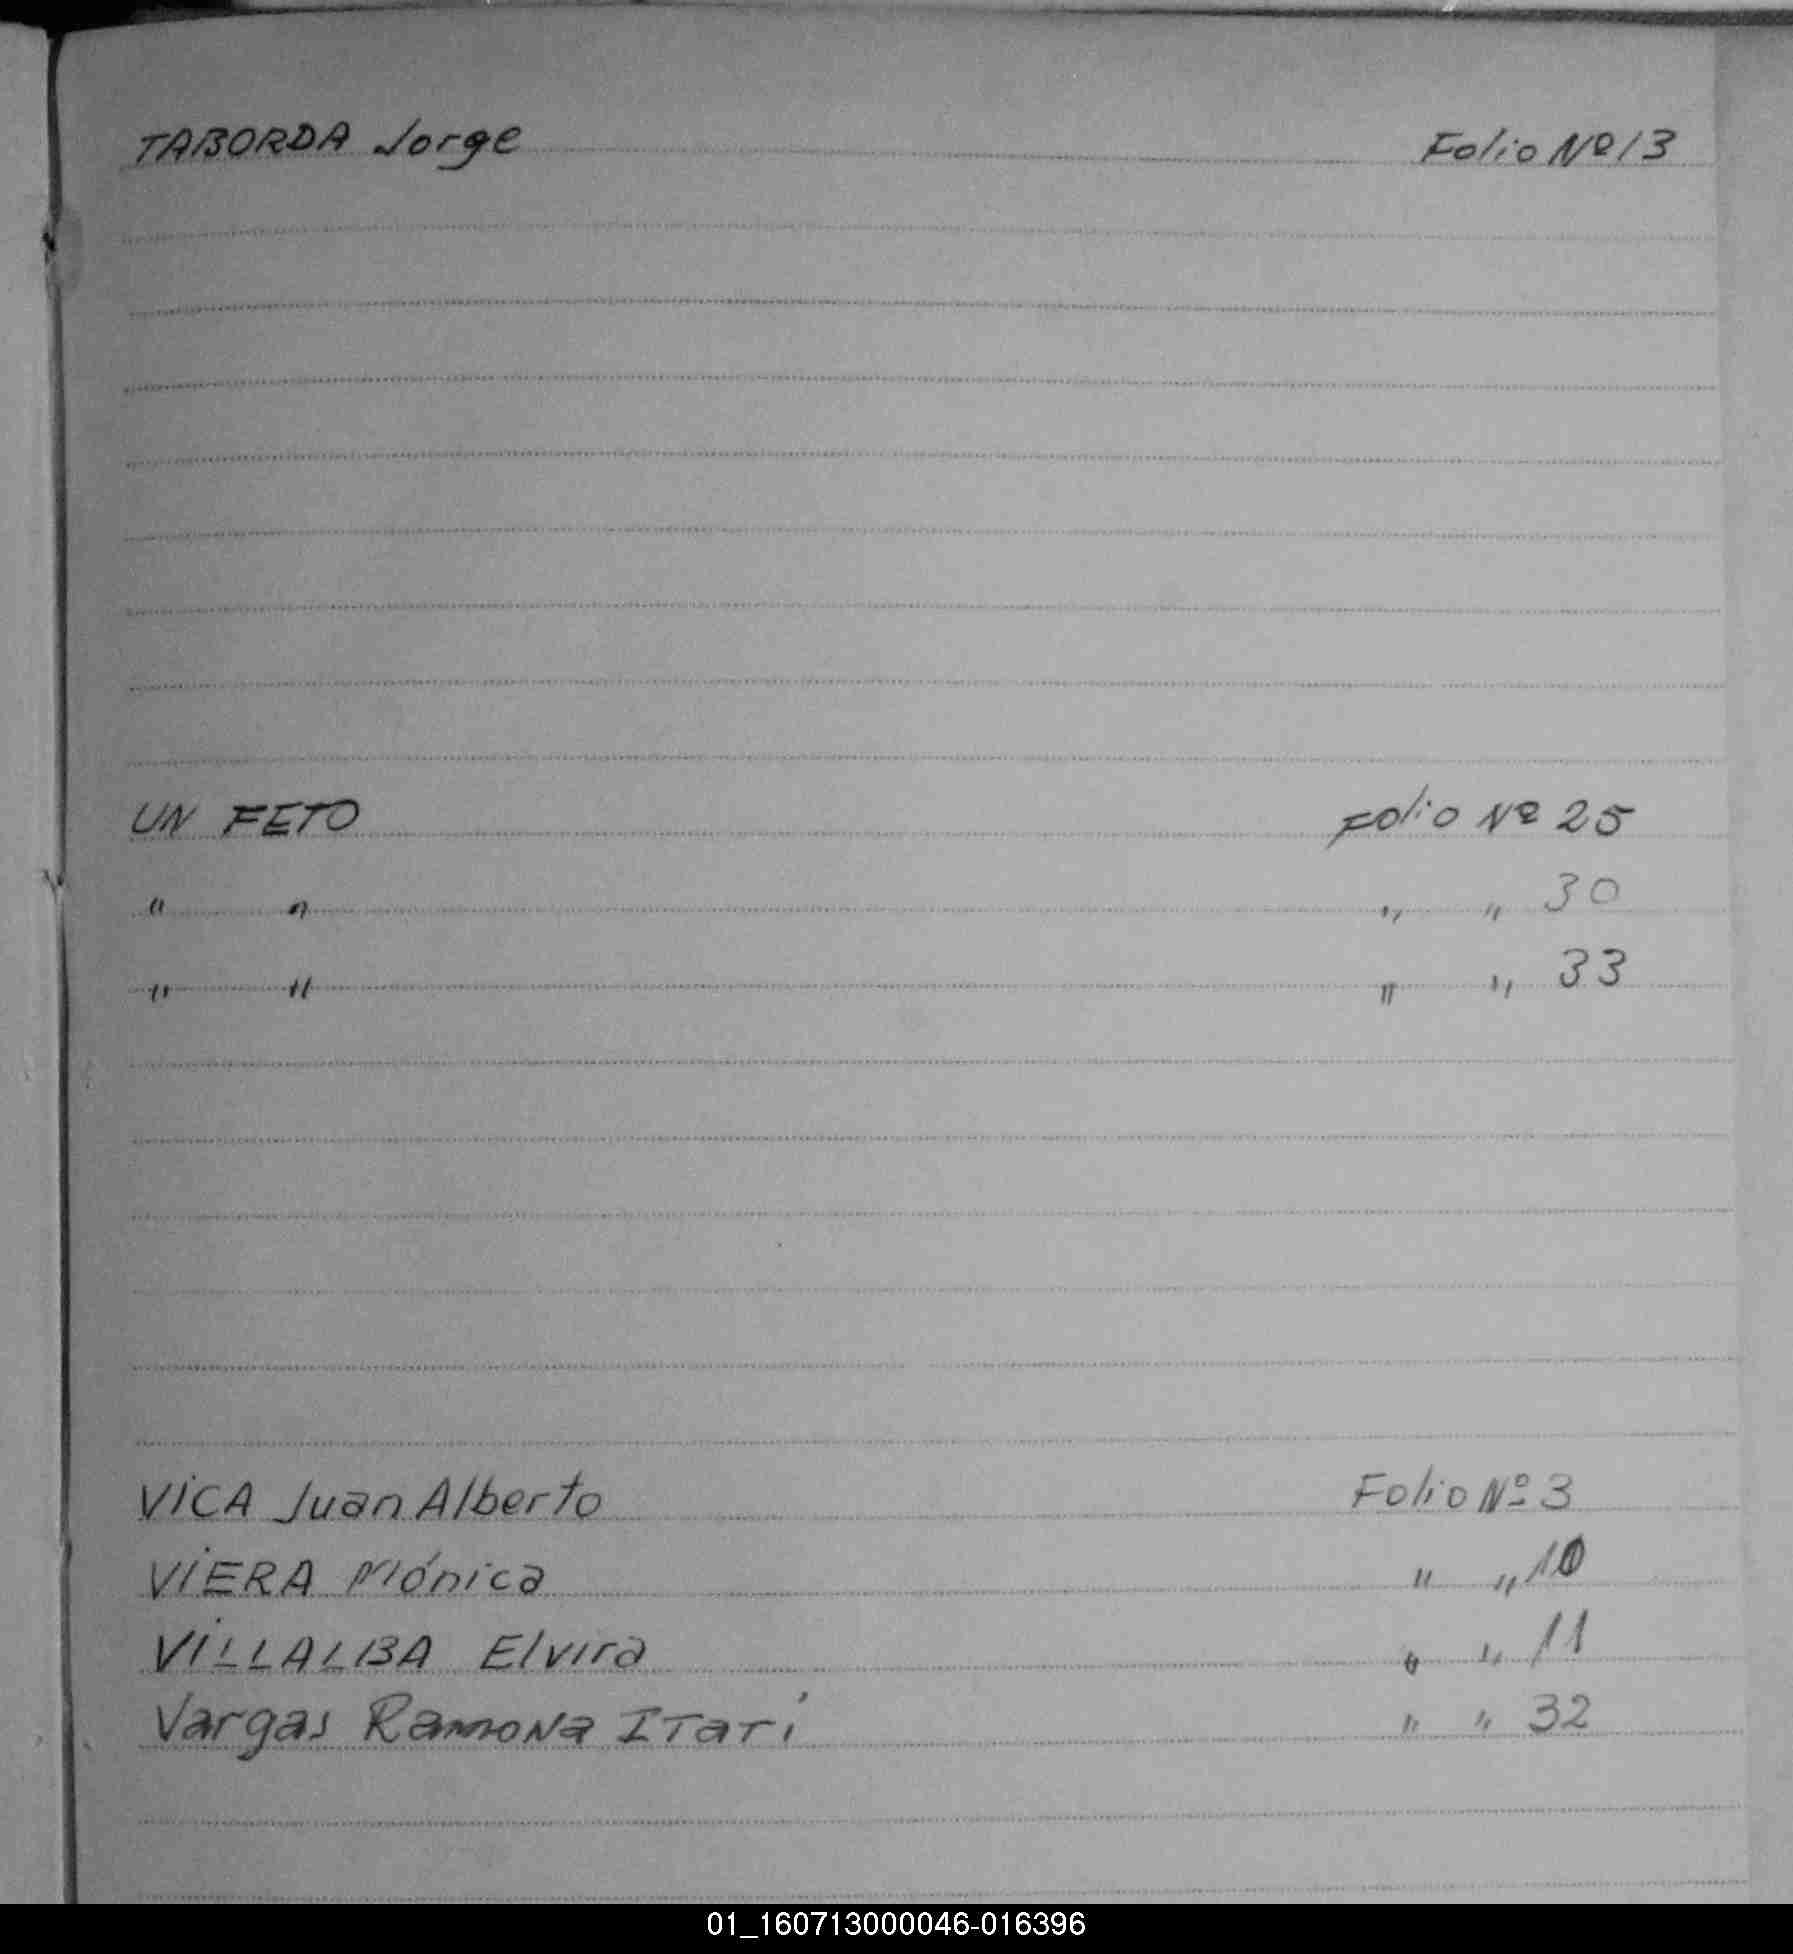 TABORDA Jorge Folio Nº 13
UN FETO Folio Nº 25
" " " " 30
" " " " 33
VICA Juan Alberto Folio Nº 3
VIERA Mónica " " 10
VILLALBA Elvira " " 11
Vargas Ramona Itatí " " 32
01_160713000046-016396